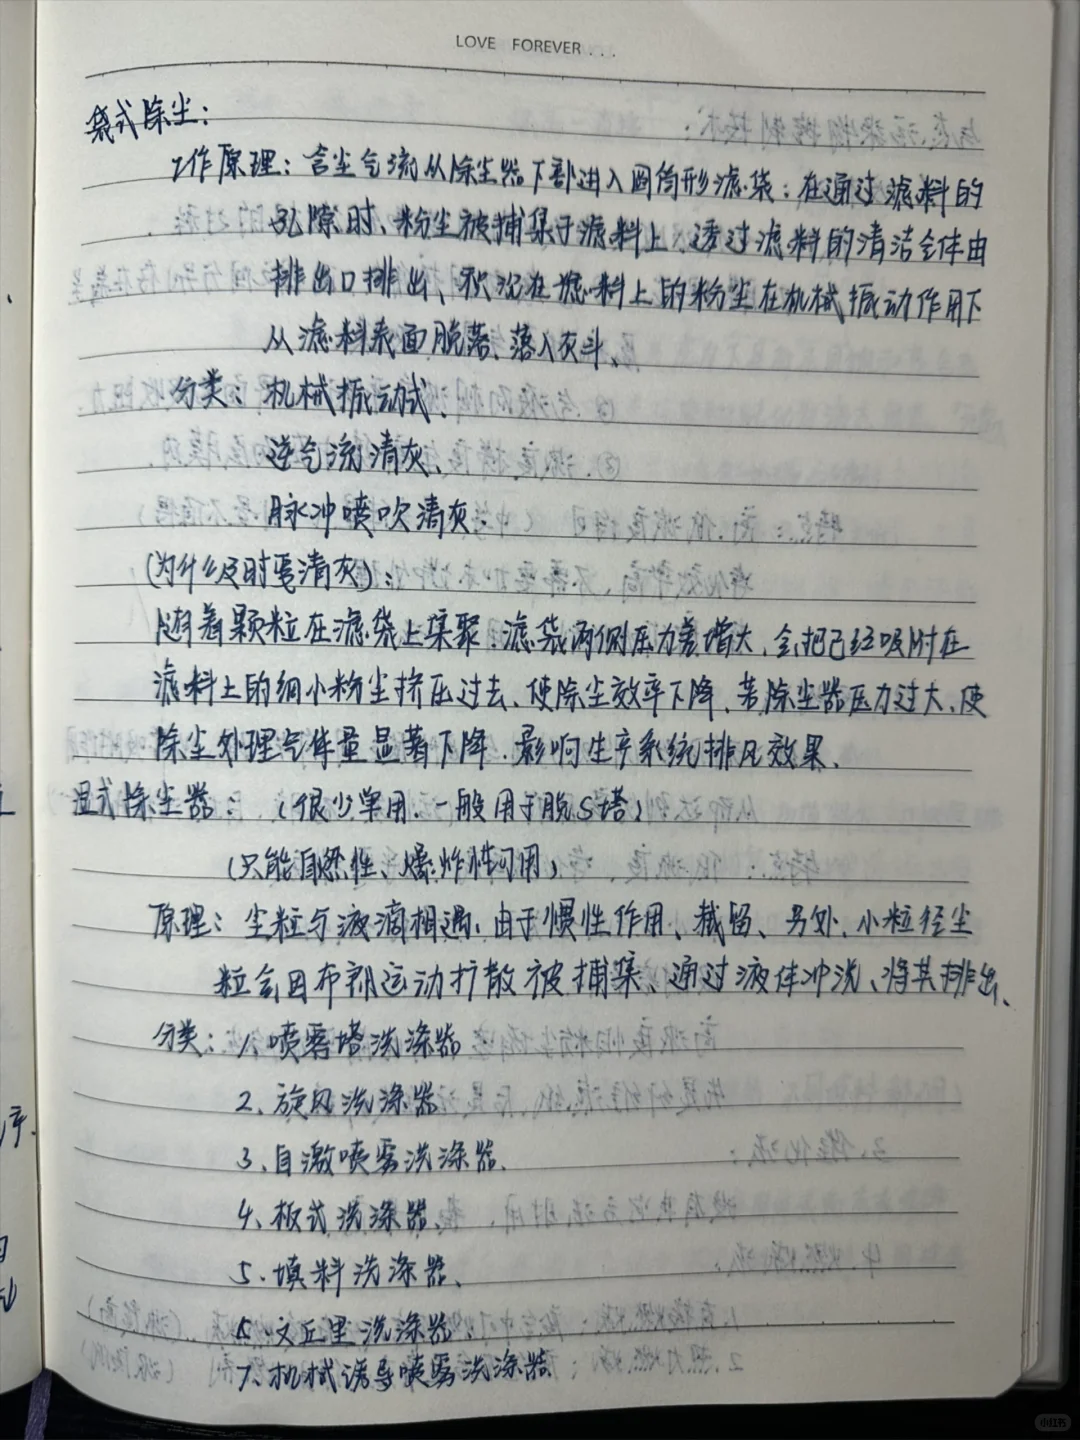 LOVE FOREVER...
袋式除尘：
工作原理：含尘气流从除尘器下部进入圆筒形滤袋；在通过滤料的
孔隙时、粉尘被捕集于滤料上、透过滤料的清洁气体由
排出口排出、积沉在滤料上的粉尘在机械振动作用下
从滤料表面脱落、落入灰斗。
分类、机械振动式、
逆气流清灰、
脉冲喷吹清灰、
(为什么及时要清灰)：
随着颗粒在滤袋上集聚、滤袋两侧压力差增大、会把已经吸附在
滤料上的细小粉尘挤压过去、使除尘效率下降、若除尘器压力过大、使
除尘处理气体量显著下降、影响生产系统排风效果、
湿式除尘器：（很少单用、一般用于脱S塔）
（只能自燃性、爆炸性可用）
原理：尘粒与液滴相遇、由于惯性作用、截留、另外、小粒径尘
粒会因布朗运动扩散被捕集、通过液体冲洗、将其排出、
分类：1、喷雾塔洗涤器
2、旋风洗涤器
3、自激喷雾洗涤器、
4、板式洗涤器、
5、填料洗涤器、
6、文丘里洗涤器、
7、机械诱导喷雾洗涤器
小红书